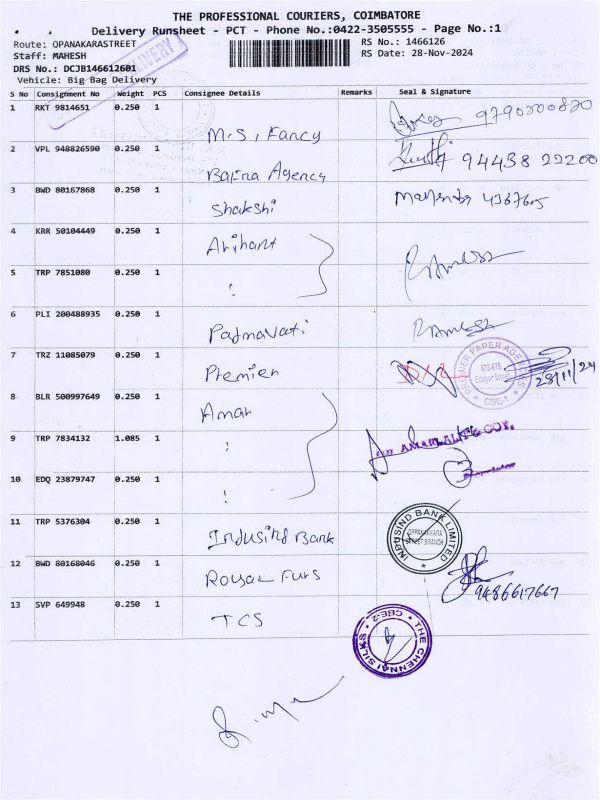 THE PROFESSIONAL COURIERS, COIMBATORE
Delivery Runsheet - PCT - Phone No.:0422-3505555 - Page No.:1
Route: OPANAKARASTREET RS No.: 1466126
Staff: MAHESH RS Date: 28-Nov-2024
DRS No.: DCJB146612601
Vehicle: Big Bag Delivery
DELIVERY
S No Consignment No Weight PCS Consignee Details Remarks Seal & Signature
1 RKT 9814651 0.250 1 M.S, Fancy 9790200820
2 VPL 948826590 0.250 1 Agency 94438 22200
3 BWD 80167868 0.250 1 Shakshi 4367605
4 KRR 50104449 0.250 1 Arihant
5 TRP 7851080 0.250 1 Ramesh
6 PLI 200488935 0.250 1 Padmavati Ramesh
7 TRZ 11085079 0.250 1 Premier
PREMIER PAPER AGENCIES
CBE-1
28/11/24
8 BLR 500997649 0.250 1 Amar
9 TRP 7834132 1.085 1
10 EDQ 23879747 0.250 1
11 TRP 5376304 0.250 1 Indusind Bank
INDUSIND BANK LIMITED
OPPANAKARA
STREET BRANCH
12 BWD 80168046 0.250 1 Royal Furs 9486617667
13 SVP 649948 0.250 1 TCS
THE CHENNAI SILKS
CBE-2